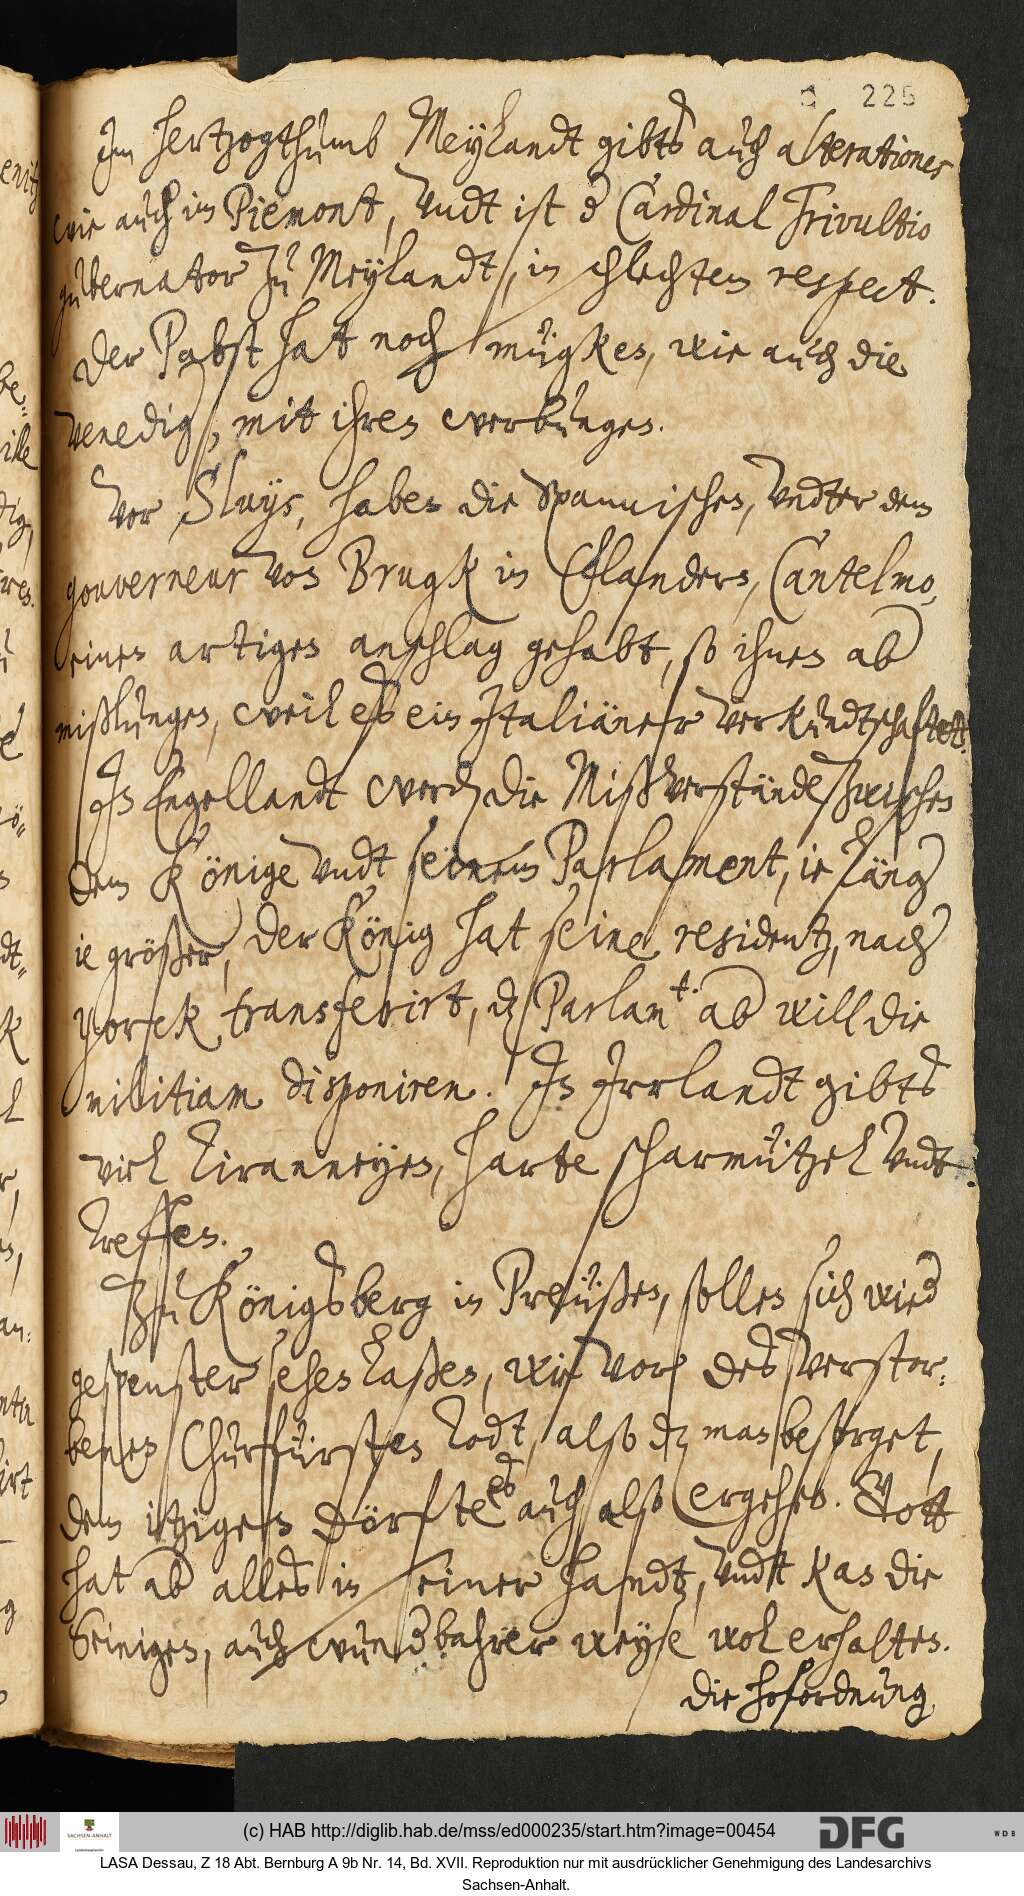 225
Im hertzogthumb Meylandt gibts auch alterationes
wie auch im Piemont, Vndt ist d Cardinal Trivultio
gubernator zu Meylandt, in schlechtem respect.
Der Pabst hat noch mügken, wie auch die
Venediger, mit ihren werbungen.
Vor Sluys, haben die Spannischen, Vndter dem
gouverneur von Brugk in Flandern, Cantelmo,
einen artigen anschlag gehabt, so ihnen ab
mißlungen, weil es ein Italiäner verkundtschaftet.
In Engellandt werden die Mißverstände zwischen
dem Könige Vndt seinem Parlament, ie läng
ie größer, der König hat seine residentz, nach
Yorck transferirt, dz Parlamt. ab will die
militiam disponiren. In Irrlandt gibts
viel Tiranneyen, harte scharmützel Vndt
treffen.
Zu Königsberg in Preüßen, sollen sich wied
gespenster sehen laßen, wie vor des verstor¬
benen Churfürsten todt, also dz man besorget,
dem itzigen dörfte es auch also ergehen. Gott
hat ab alles in seiner handt, Vndt kan die
Seinigen, auch wundbahrer weyse wol erhalten.
Die hofordnung
(c) HAB http://diglib.hab.de/mss/ed000235/start.htm?image=00454
SACHSEN-ANHALT
Landesarchiv
DFG
WDB
LASA Dessau, Z 18 Abt. Bernburg A 9b Nr. 14, Bd. XVII. Reproduktion nur mit ausdrücklicher Genehmigung des Landesarchivs
Sachsen-Anhalt.